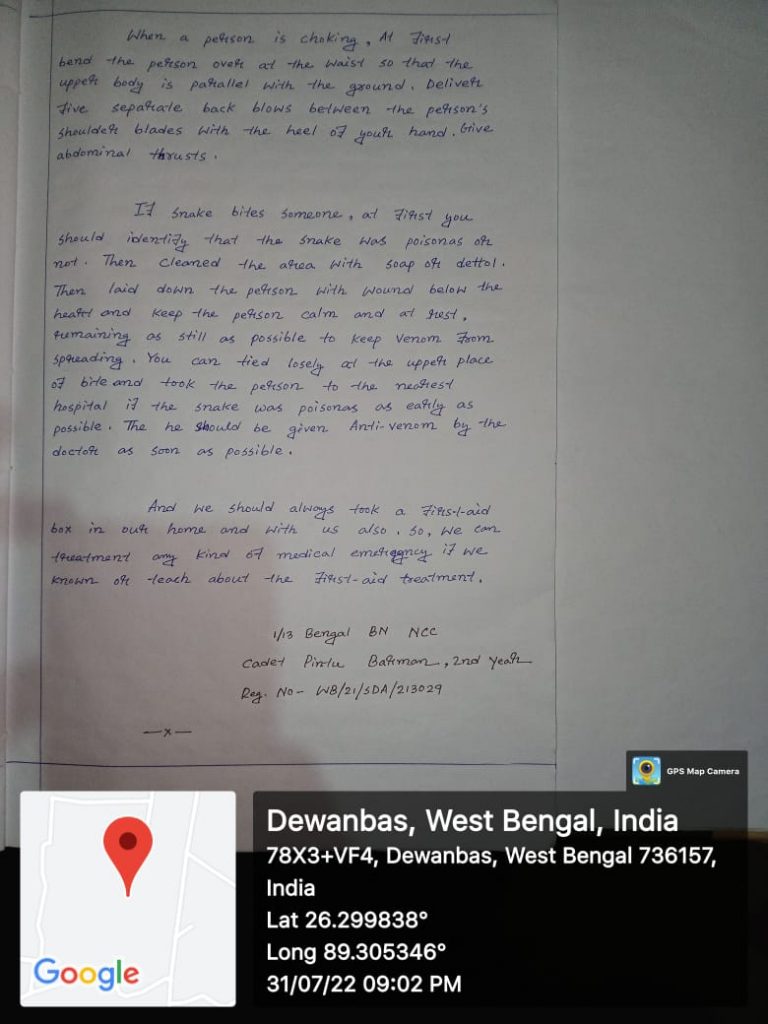 When a person is choking, At First
bend the person over at the waist so that the
upper body is parallel with the ground. Deliver
five separate back blows between the person's
shoulder blades with the heel of your hand. Give
abdominal thrusts.
If snake bites someone, at first you
should identify that the snake was poisonas or
not. Then cleaned the area with soap or dettol.
Then laid down the person with wound below the
heart and keep the person calm and at rest,
remaining as still as possible to keep venom from
spreading. You can tied losely at the upper place
of bite and took the person to the nearest
hospital if the snake was poisonas as early as
possible. The he should be given Anti-venom by the
doctor as soon as possible.
And we should always took a First-aid
box in our home and with us also. So, we can
treatment any kind of medical emergency if we
known or teach about the First-aid treatment.
1/13 Bengal BN NCC
Cadet Pintu Barman, 2nd Year
Reg. No- WB/21/SDA/213029
—x—
GPS Map Camera
Dewanbas, West Bengal, India
78X3+VF4, Dewanbas, West Bengal 736157,
India
Lat 26.299838°
Long 89.305346°
31/07/22 09:02 PM
Google